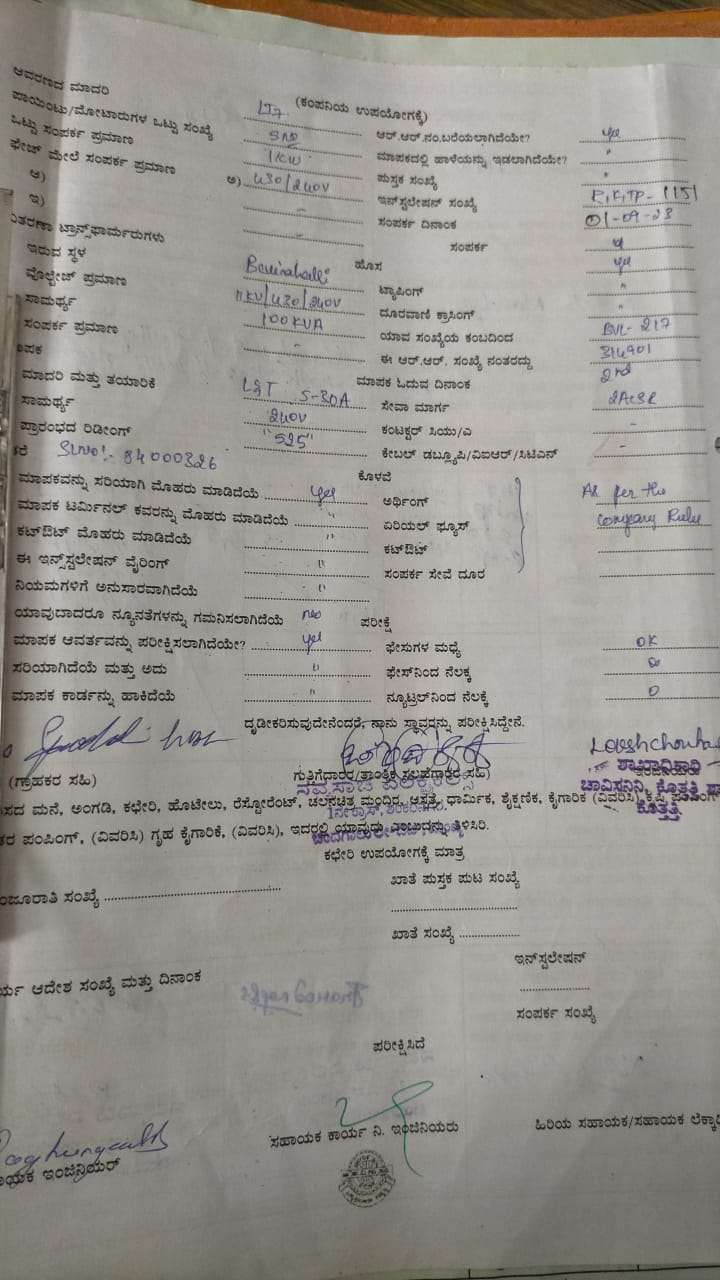 ಆವರಣದ ಮಾದರಿ LT7 (ಕಂಪನಿಯ ಉಪಯೋಗಕ್ಕೆ)
ಪಾಯಿಂಟು/ಮೋಟಾರುಗಳ ಒಟ್ಟು ಸಂಖ್ಯೆ ಆರ್.ಆರ್.ನಂ.ಬರೆಯಲಾಗಿದೆಯೇ? yes
ಒಟ್ಟು ಸಂಪರ್ಕ ಪ್ರಮಾಣ 1KW ಮಾಪಕದಲ್ಲಿ ಹಾಳೆಯನ್ನು ಇಡಲಾಗಿದೆಯೇ? "
ಫೇಜ್ ಮೇಲೆ ಸಂಪರ್ಕ ಪ್ರಮಾಣ ಪುಸ್ತಕ ಸಂಖ್ಯೆ "
ಅ) ಅ) 430/240V ಇನ್‌ಸ್ಟಲೇಷನ್ ಸಂಖ್ಯೆ
ಇ) - ಸಂಪರ್ಕ ದಿನಾಂಕ 01-09-23
ವಿತರಣಾ ಟ್ರಾನ್ಸ್‌ಫಾರ್ಮರುಗಳು - ಸಂಪರ್ಕ
ಇರುವ ಸ್ಥಳ Bevinahalli ಹೊಸ yes
ವೊಲ್ಟೇಜ್ ಪ್ರಮಾಣ 11KV/430/240V ಟ್ಯಾಪಿಂಗ್ "
ಸಾಮರ್ಥ್ಯ 100KVA ದೂರವಾಣಿ ಕ್ರಾಸಿಂಗ್ "
ಸಂಪರ್ಕ ಪ್ರಮಾಣ - ಯಾವ ಸಂಖ್ಯೆಯ ಕಂಬದಿಂದ BVL-217
ಈ ಆರ್.ಆರ್. ಸಂಖ್ಯೆ ನಂತರದ್ದು 314901
ಮಾದರಿ ಮತ್ತು ತಯಾರಿಕೆ L&T 5-30A ಮಾಪಕ ಓದುವ ದಿನಾಂಕ 2nd
ಸಾಮರ್ಥ್ಯ 240V ಸೇವಾ ಮಾರ್ಗ 2ACSR
ಪ್ರಾರಂಭದ ರಿಡೀಂಗ್ "525" ಕಂಟಕ್ಟರ್ ಸಿಯು/ಎ -
Slno:- 84000326 ಕೇಬಲ್ ಡಬ್ಲ್ಯೂಪಿ/ವಿಐಆರ್/ಸಿಟಿಎಸ್ -
ಕೊಳವೆ
ಮಾಪಕವನ್ನು ಸರಿಯಾಗಿ ಮೊಹರು ಮಾಡಿದೆಯೆ yes ಅರ್ಥಿಂಗ್ As per the
ಮಾಪಕ ಟರ್ಮಿನಲ್ ಕವರನ್ನು ಮೊಹರು ಮಾಡಿದೆಯೆ " ಏರಿಯಲ್ ಫ್ಯೂಸ್ Company Rules
ಕಟ್‌ಔಟ್ ಮೊಹರು ಮಾಡಿದೆಯೆ " ಕಟ್‌ಔಟ್
ಈ ಇನ್ಸ್‌ಸ್ಟಲೇಷನ್ ವೈರಿಂಗ್ " ಸಂಪರ್ಕ ಸೇವೆ ದೂರ
ನಿಯಮಗಳಿಗೆ ಅನುಸಾರವಾಗಿದೆಯೆ "
ಯಾವುದಾದರೂ ನ್ಯೂನತೆಗಳನ್ನು ಗಮನಿಸಲಾಗಿದೆಯೆ no ಪರೀಕ್ಷೆ
ಮಾಪಕ ಆವರ್ತವನ್ನು ಪರೀಕ್ಷಿಸಲಾಗಿದೆಯೇ? yes ಫೇಸುಗಳ ಮಧ್ಯೆ OK
ಸರಿಯಾಗಿದೆಯೆ ಮತ್ತು ಅದು " ಫೇಸ್‌ನಿಂದ ನೆಲಕ್ಕ
ಮಾಪಕ ಕಾರ್ಡನ್ನು ಹಾಕಿದೆಯೆ " ನ್ಯೂಟ್ರಲ್‌ನಿಂದ ನೆಲಕ್ಕೆ 0
ದೃಡೀಕರಿಸುವುದೇನೆಂದರೆ, ನಾನು ಸ್ಥಾವರನ್ನು ಪರೀಕ್ಷಿಸಿದ್ದೇನೆ.
(ಗ್ರಾಹಕರ ಸಹಿ) ಗುತ್ತಿಗೆದಾರರ/ತಾಂತ್ರಿಕ ಸಲಹೆಗಾರರ ಸಹಿ)
ಶಾಖಾಧಿಕಾರಿ
ಚಾವಿಸನಿನಿ, ಕೊತ್ತತ್ತಿ
ಕೊತ್ತತ್ತಿ
ವಾಸದ ಮನೆ, ಅಂಗಡಿ, ಕಛೇರಿ, ಹೊಟೇಲು, ರೆಸ್ಟೋರೆಂಟ್, ಚಲನಚಿತ್ರ ಮಂದಿರ, ಆಸ್ಪತ್ರೆ, ಧಾರ್ಮಿಕ, ಶೈಕ್ಷಣಿಕ, ಕೈಗಾರಿಕ (ವಿವರಿಸಿ) ಕೃಷಿ ಪಂಪಿಂಗ್
ಪಂಪಿಂಗ್, (ವಿವರಿಸಿ) ಗೃಹ ಕೈಗಾರಿಕೆ, (ವಿವರಿಸಿ), ಇದರಲ್ಲಿ ಯಾವುದು ಎಂಬುದನ್ನು ತಿಳಿಸಿರಿ.
ಕಛೇರಿ ಉಪಯೋಗಕ್ಕೆ ಮಾತ್ರ
ಮಂಜೂರಾತಿ ಸಂಖ್ಯೆ ಖಾತೆ ಪುಸ್ತಕ ಪುಟ ಸಂಖ್ಯೆ
ಖಾತೆ ಸಂಖ್ಯೆ
ಇನ್‌ಸ್ಟಲೇಷನ್
ಕಾರ್ಯ ಆದೇಶ ಸಂಖ್ಯೆ ಮತ್ತು ದಿನಾಂಕ
ಸಂಪರ್ಕ ಸಂಖ್ಯೆ
ಪರೀಕ್ಷಿಸಿದೆ
ಸಹಾಯಕ ಇಂಜಿನಿಯರ್ ಸಹಾಯಕ ಕಾರ್ಯ ನಿ. ಇಂಜಿನಿಯರು ಹಿರಿಯ ಸಹಾಯಕ/ಸಹಾಯಕ